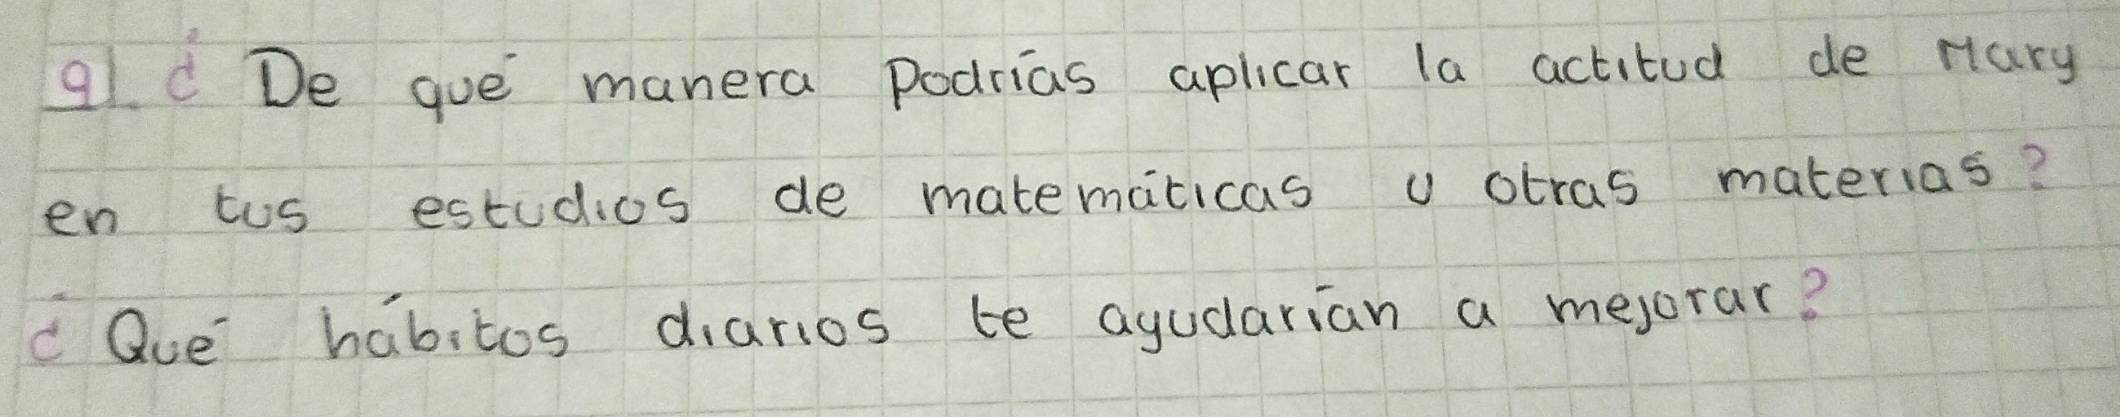 9). ¿De qué manera Podrías aplicar la actitud de Mary
en tus estudios de matemáticas u otras materias?
¿Qué hábitos diarios te ayudarían a mejorar?